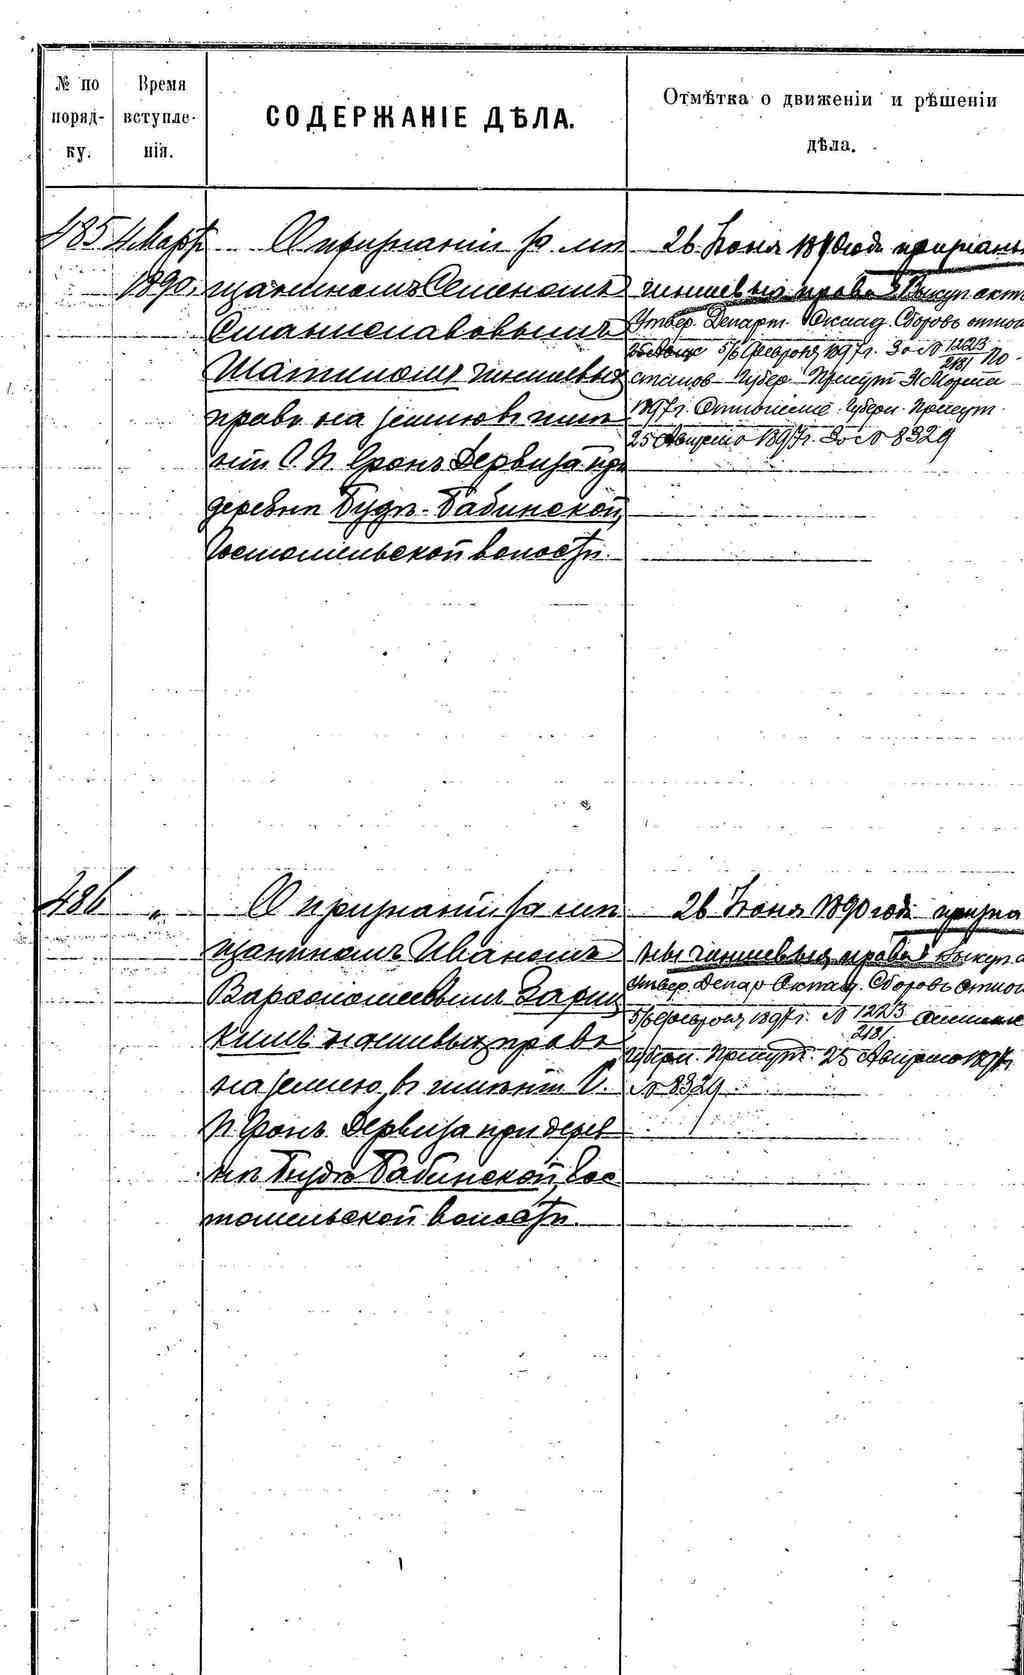 № по порядку.
Время вступленія.
СОДЕРЖАНІЕ ДѢЛА.
Отмѣтка о движеніи и рѣшеніи
дѣла.
485 4 Март.
1890.
О признаніи за мѣ
щаниномъ Семеномъ
Станиславовымъ
Шатиломъ чиншевыхъ
правъ на землю въ имѣ
ніи О. П. Фонъ Дервиза при
деревнѣ Будѣ-Бабинской,
Гостомельской волости.
26 Іюня 1890 года признаны
чиншевыя права. Выкуп. акт
Утвер. Департ. Оклад. Сборовъ отнош
5/6 Февраля 1897 г. За № 12213
2181 По-
станов. Губер. Присут. Марта
1897 г. Отношеніе Губерн. Присут.
25 Августа 1897 г. За № 8329
486 "
О признаніи за мѣ
щаниномъ Иваномъ
Варфоломеевымъ Зариц
кимъ чиншевыхъ правъ
на землю въ имѣніи О.
П. Фонъ Дервиза при дерев
нѣ Будѣ Бабинской, Гос
томельской волости.
26 Іюня 1890 года призна
ны чиншевыя права. Выкуп. а
Утвер. Депар. Оклад. Сборовъ отнош
5/6 Февраля 1897 г. № 12213
2181
Губерн. Присут. 25 Августа 1897 г.
№ 8329